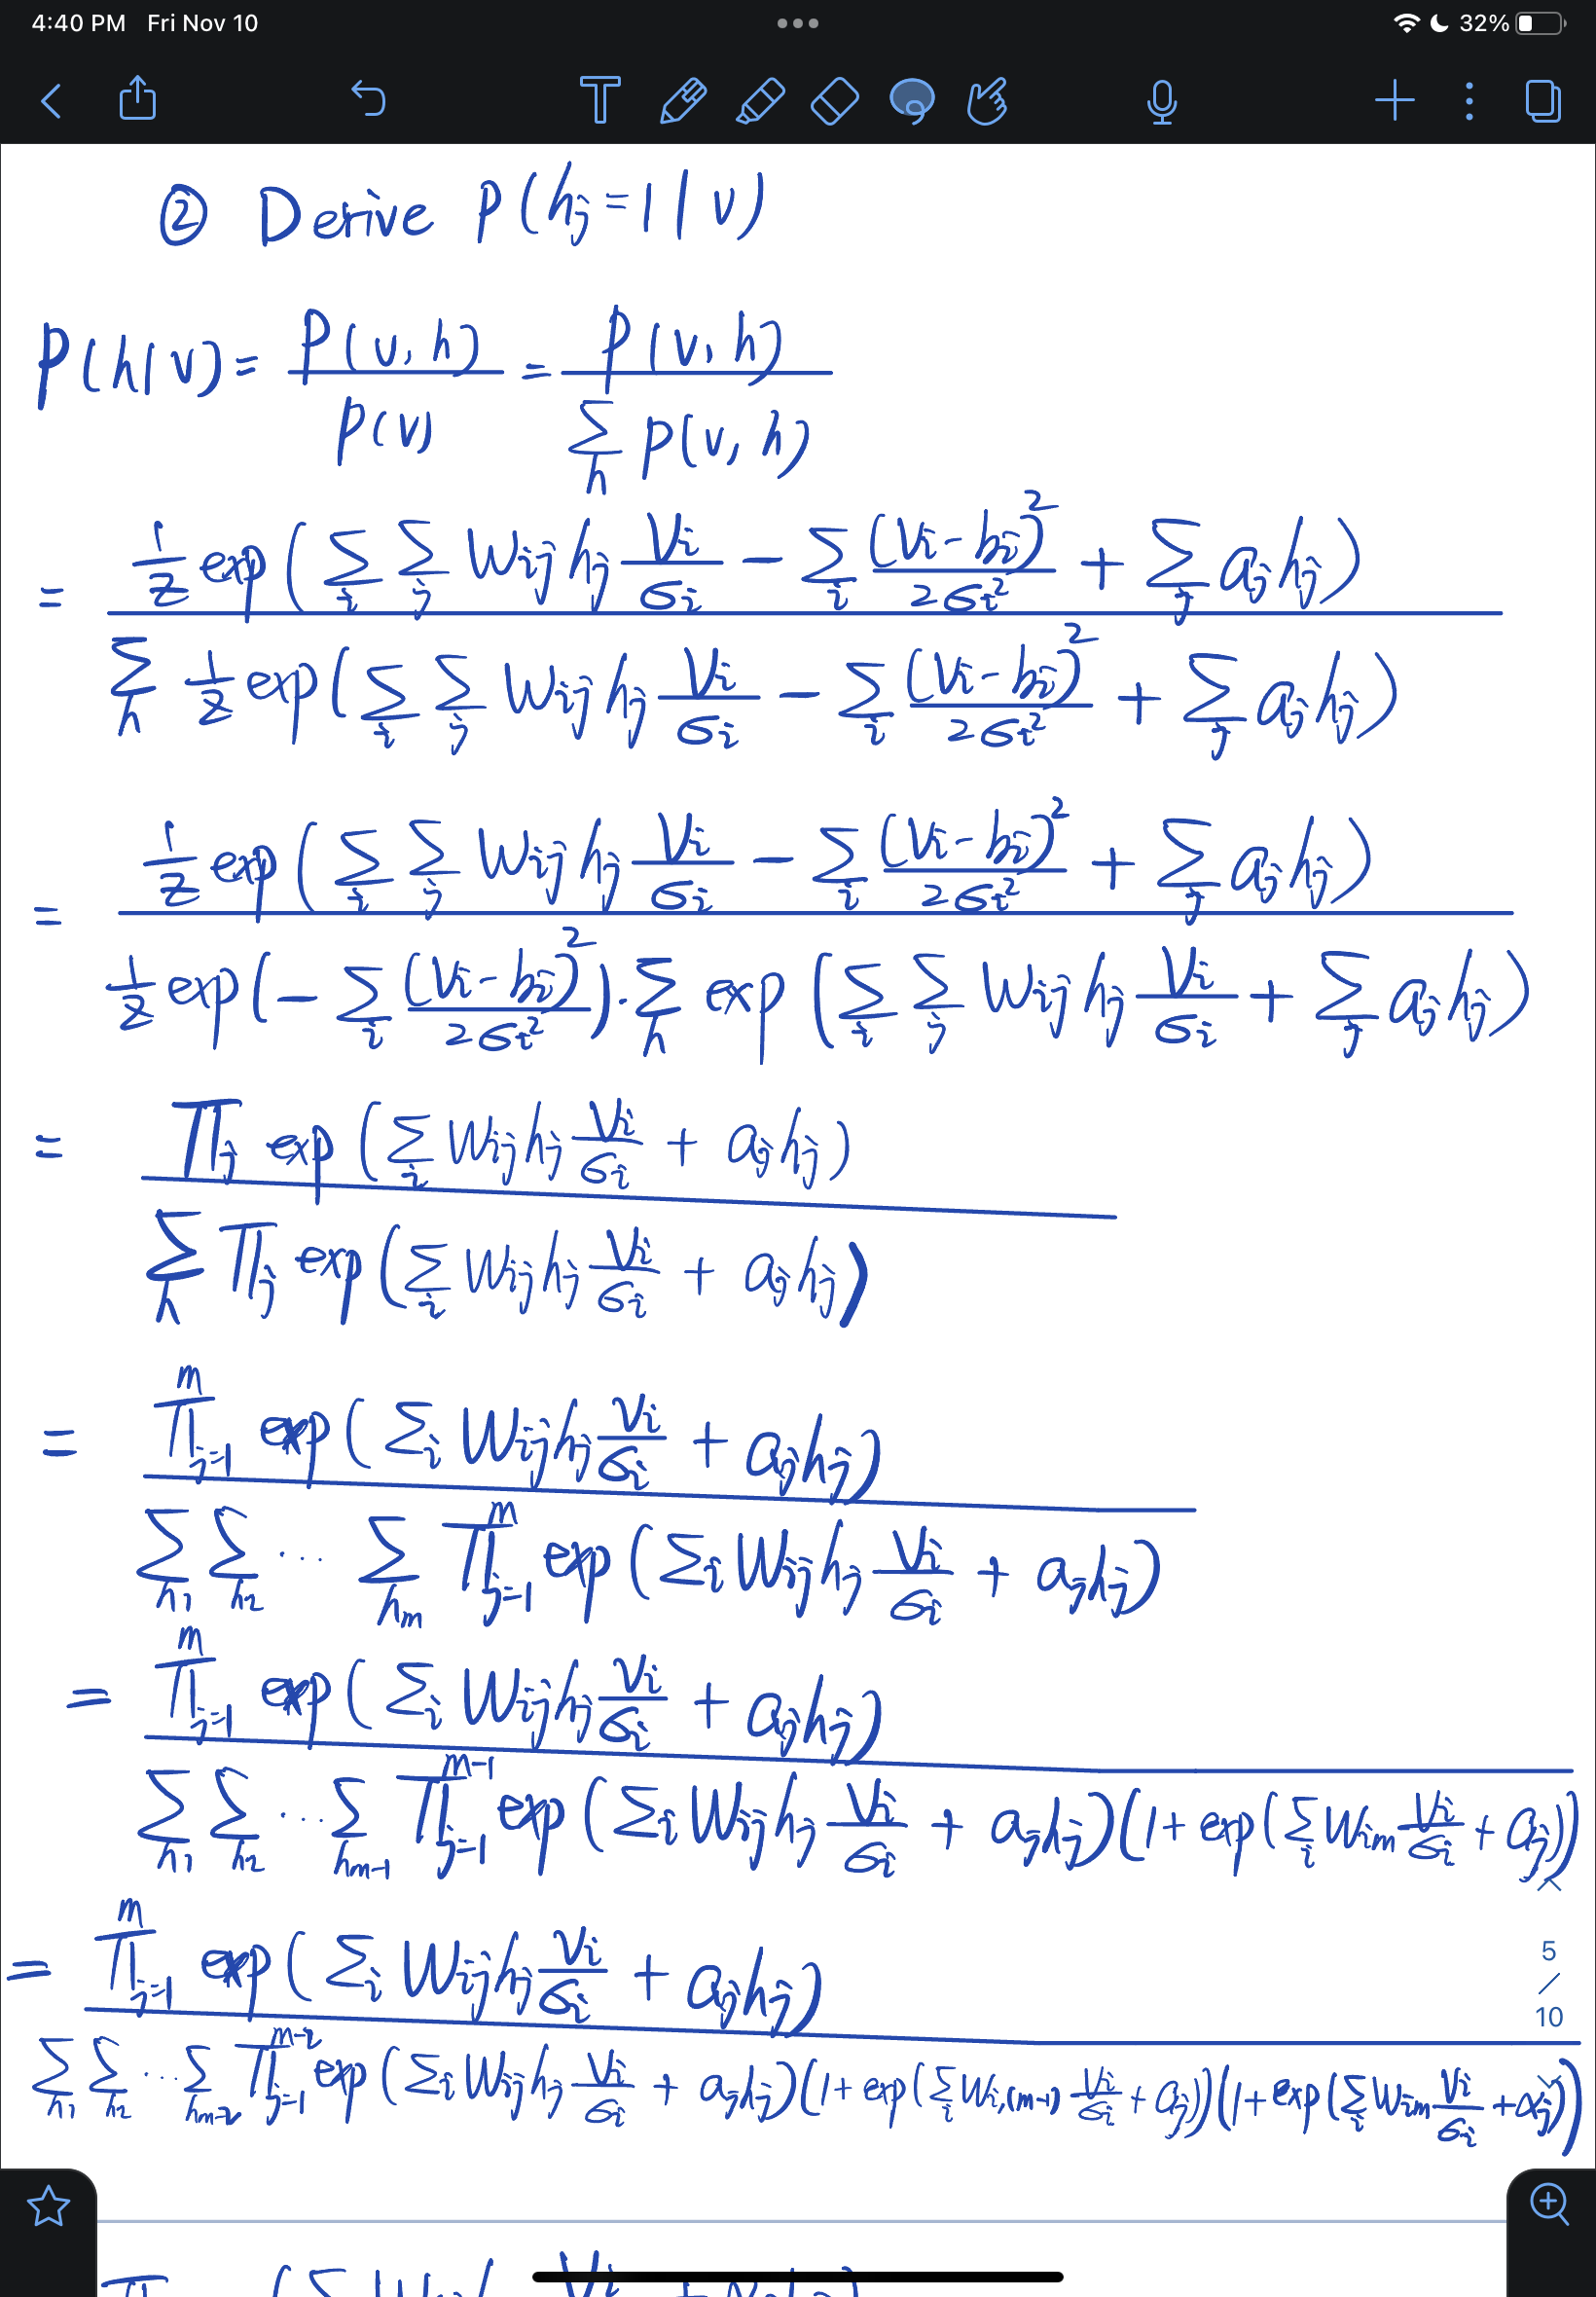 4:40 PM Fri Nov 10 32%
② Derive P(hⱼ=1|v)
P(h|v) = P(v,h) / P(v) = P(v,h) / Σ_h P(v,h)
= 1/Z exp(Σ_i Σ_j W_ij h_j V_i/σ_i − Σ_i (V_i−b_i)²/2σ_i² + Σ_j a_j h_j) / Σ_h 1/Z exp(Σ_i Σ_j W_ij h_j V_i/σ_i − Σ_i (V_i−b_i)²/2σ_i² + Σ_j a_j h_j)
= 1/Z exp(Σ_i Σ_j W_ij h_j V_i/σ_i − Σ_i (V_i−b_i)²/2σ_i² + Σ_j a_j h_j) / 1/Z exp(−Σ_i (V_i−b_i)²/2σ_i²)·Σ_h exp(Σ_i Σ_j W_ij h_j V_i/σ_i + Σ_j a_j h_j)
= Π_j exp(Σ_i W_ij h_j V_i/σ_i + a_j h_j) / Σ_h Π_j exp(Σ_i W_ij h_j V_i/σ_i + a_j h_j)
= Π_{j=1}^m exp(Σ_i W_ij h_j V_i/σ_i + a_j h_j) / Σ_{h1} Σ_{h2} ... Σ_{hm} Π_{j=1}^m exp(Σ_i W_ij h_j V_i/σ_i + a_j h_j)
= Π_{j=1}^m exp(Σ_i W_ij h_j V_i/σ_i + a_j h_j) / Σ_{h1} Σ_{h2} ... Σ_{hm−1} Π_{j=1}^{m−1} exp(Σ_i W_ij h_j V_i/σ_i + a_j h_j)(1+exp(Σ_i W_im V_i/σ_i + a_j))
= Π_{j=1}^m exp(Σ_i W_ij h_j V_i/σ_i + a_j h_j) / Σ_{h1} Σ_{h2} ... Σ_{hm−2} Π_{j=1}^{m−2} exp(Σ_i W_ij h_j V_i/σ_i + a_j h_j)(1+exp(Σ_i W_i,(m−1) V_i/σ_i + a_j))(1+exp(Σ_i W_im V_i/σ_i + a_j))
5 / 10